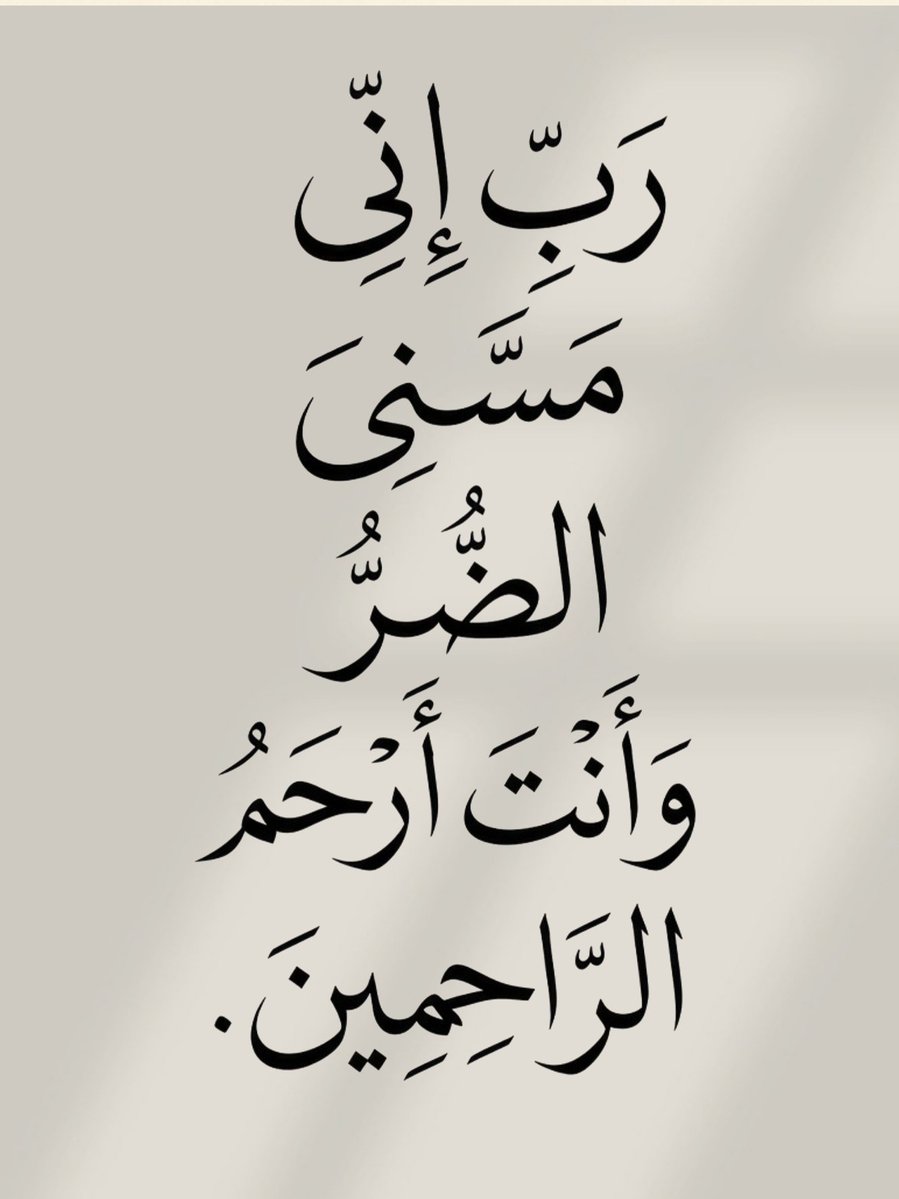 رَبِّ إِنِّى
مَسَّنِىَ
الضُّرُّ
وَأَنْتَ أَرْحَمُ
الرَّاحِمِينَ.